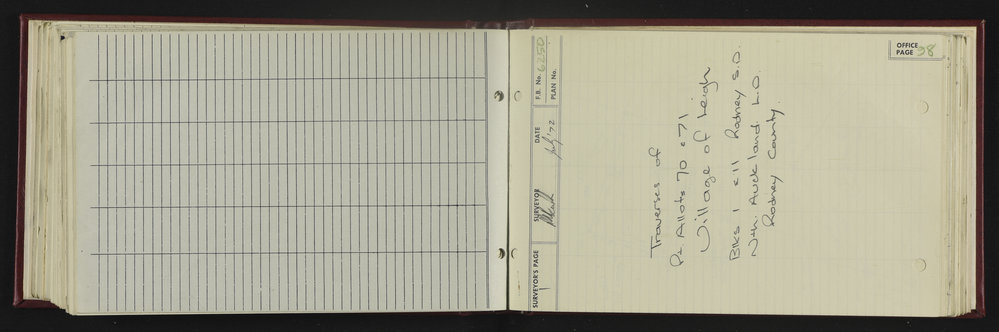 SURVEYOR'S PAGE 1
SURVEYOR
DATE July '72
F.B. No. 6250
PLAN No.
OFFICE PAGE 38
Traverses of
Pt Allots 70 & 71
Village of Leigh
Blks 1 & 11 Rodney S.D.
Nth. Auckland L.D.
Rodney County.